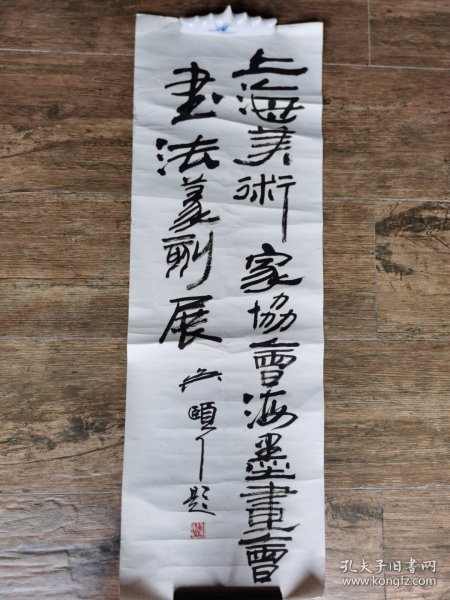 上海美術家協會海墨畫會
书法篆刻展
吴頤人題
孔夫子旧书网
www.kongfz.com